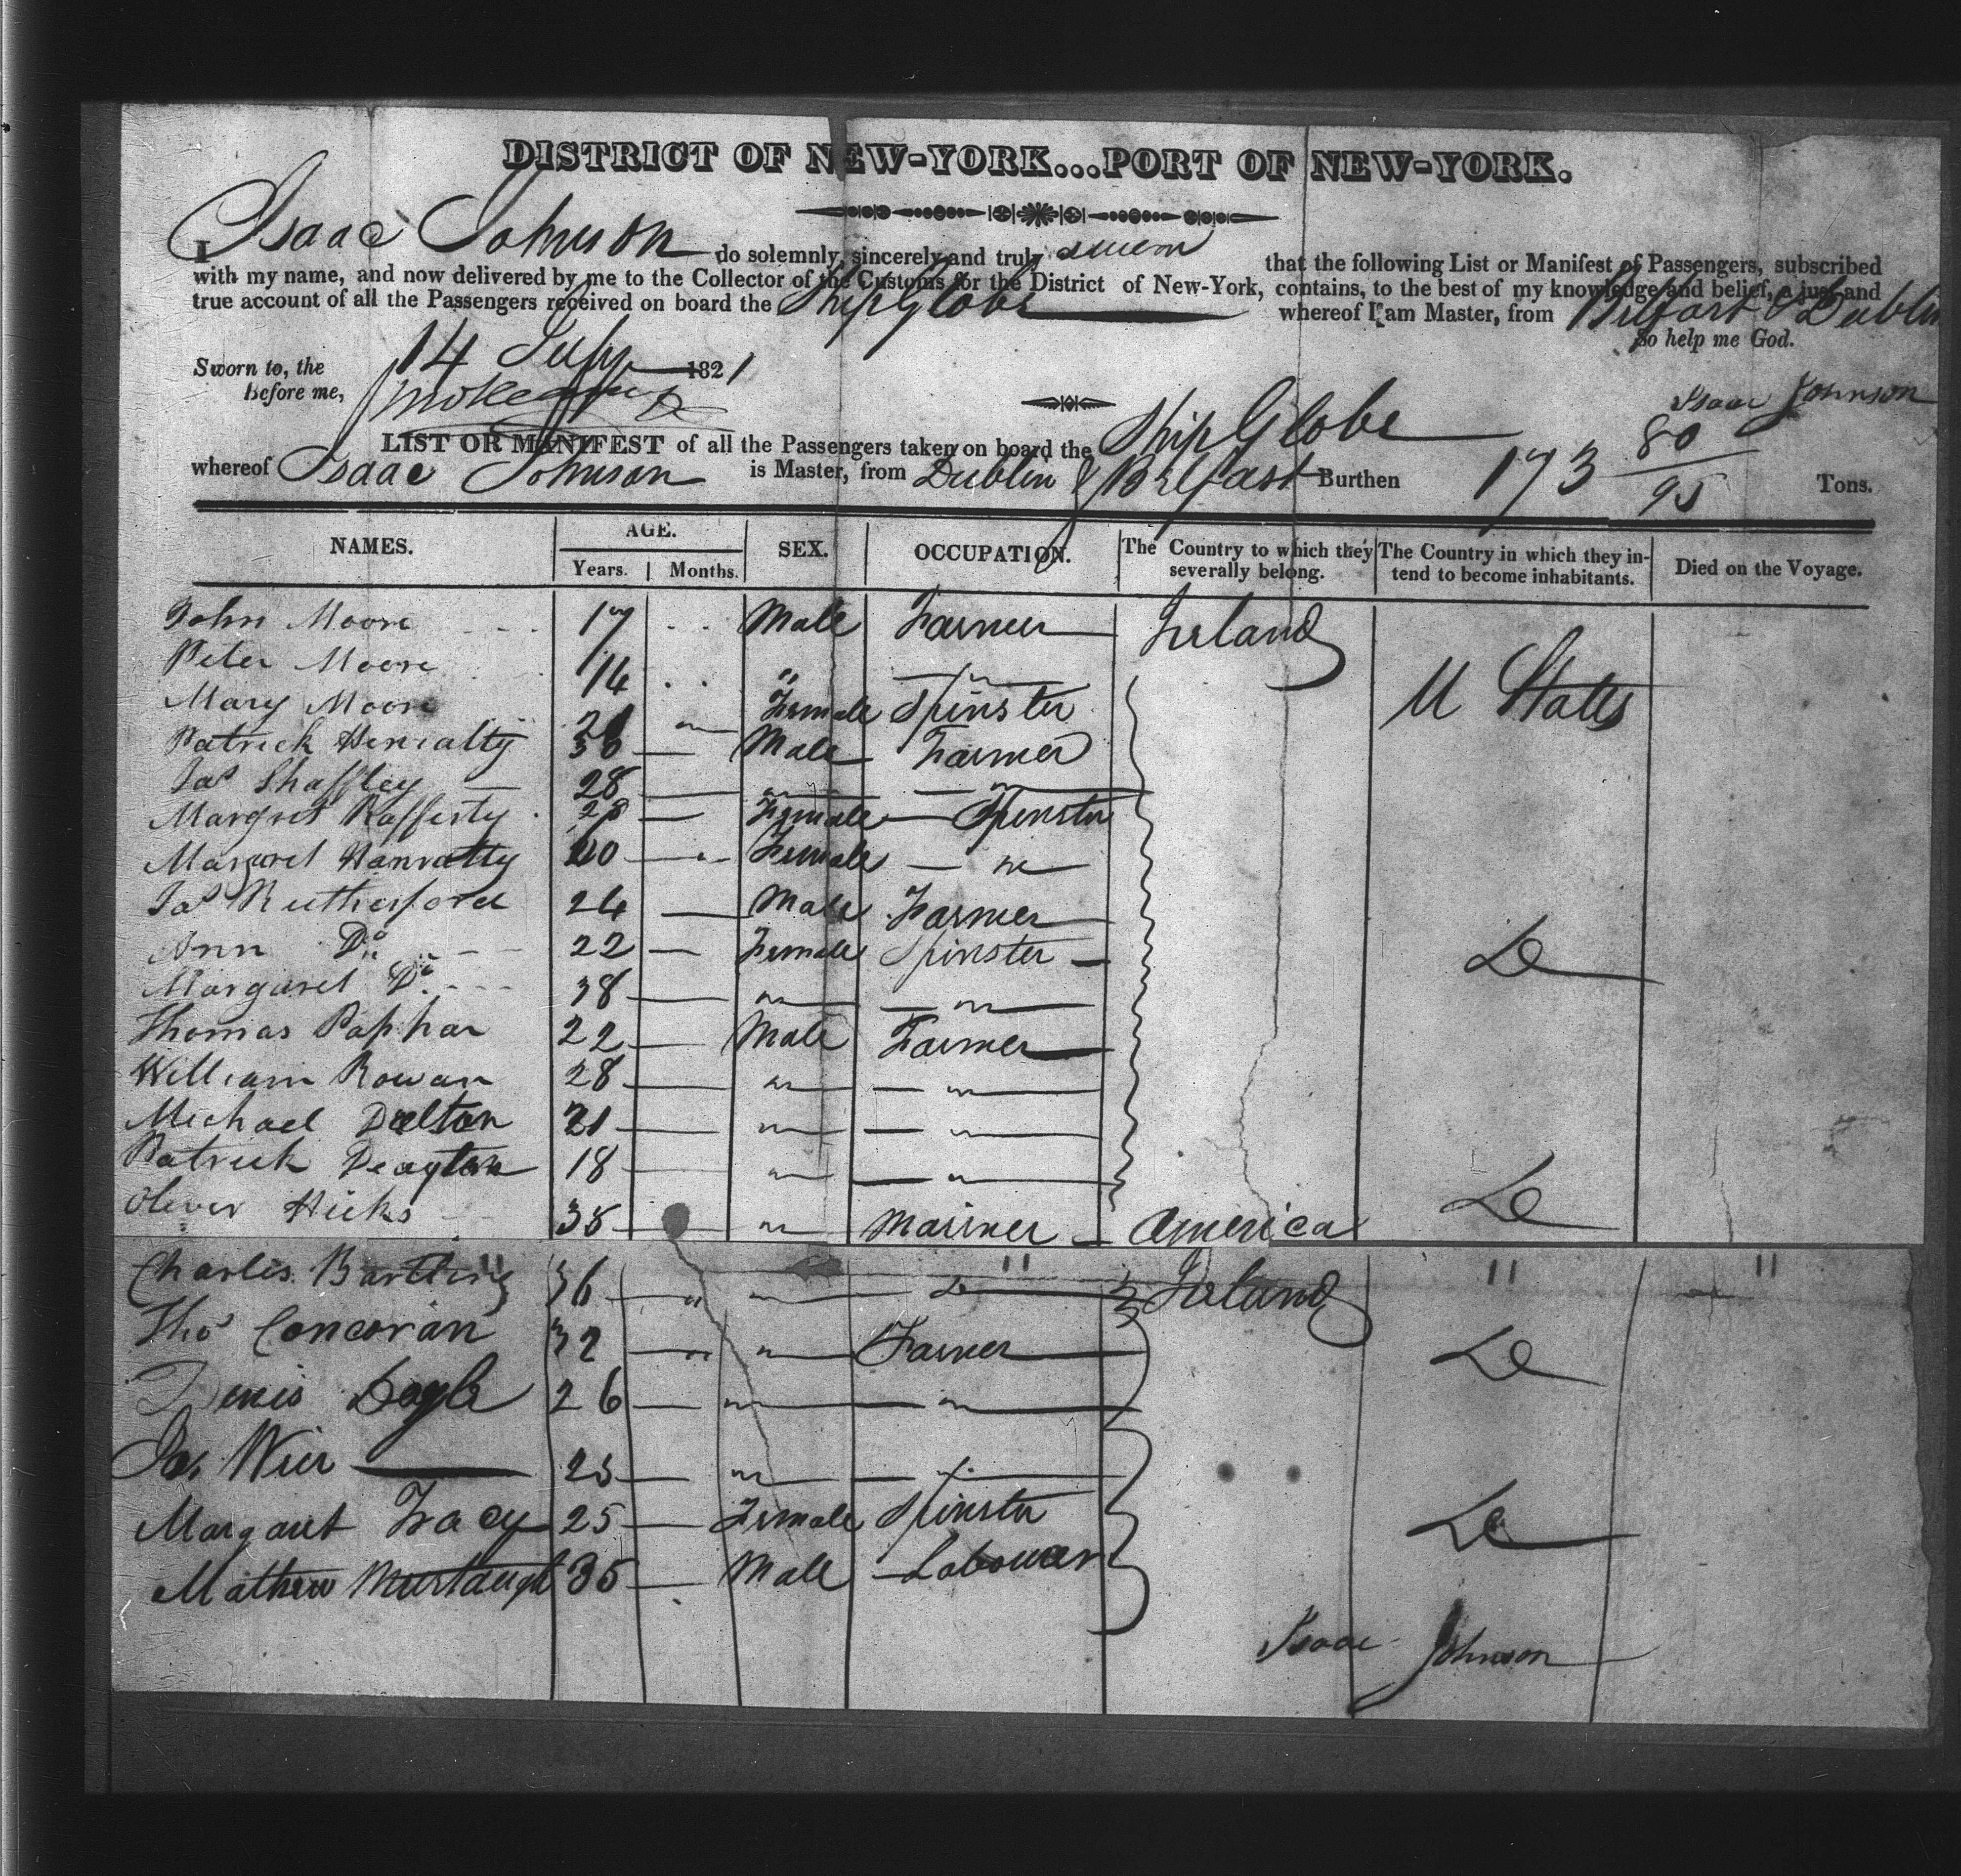 DISTRICT OF NEW-YORK...PORT OF NEW-YORK.
I Isaac Johnson do solemnly, sincerely and truly swear that the following List or Manifest of Passengers, subscribed
with my name, and now delivered by me to the Collector of the Customs for the District of New-York, contains, to the best of my knowledge and belief, a just and
true account of all the Passengers received on board the Ship Globe whereof I am Master, from Belfast & Dublin
So help me God.
Sworn to, the 14 1821
Before me,
Isaac Johnson
LIST OR MANIFEST of all the Passengers taken on board the Ship Globe
whereof Isaac Johnson is Master, from Dublin & Belfast Burthen 173 80/95 Tons.
NAMES. AGE. SEX. OCCUPATION. The Country to which they severally belong. The Country in which they intend to become inhabitants. Died on the Voyage.
Years. Months.
John Moore 17 Male Farmer Ireland
Peter Moore 14 " — " — U States
Mary Moore 21 " Female Spinster
Patrick 30 — Male Farmer
Jas Shaffley — 28 — " — " —
Margret Rafferty 28 — Female — Spinster
Margret Hanratty 20 — " Female — " —
Jas Rutherford 24 — Male Farmer
Ann Do 22 — Female Spinster — Do
Margaret Do 38 — " — " —
Thomas Paphar 22 — Male Farmer
William Rowan 28 — " — " —
Michael Dalton 21 — " — " —
Patrick Deayton 18 — " — " —
Oliver Hicks 38 — " Mariner — America Do
Charles Bartling 36 — " " Do Ireland " "
Thos Concoran 32 — " " Farmer Do
Denis Dogle 26 — " — " —
Jas. Weir 25 — " — " —
Margaret Tracy 25 — Female Spinster Do
Mathew Murtaugh 35 — Male — Labourer
Isaac Johnson